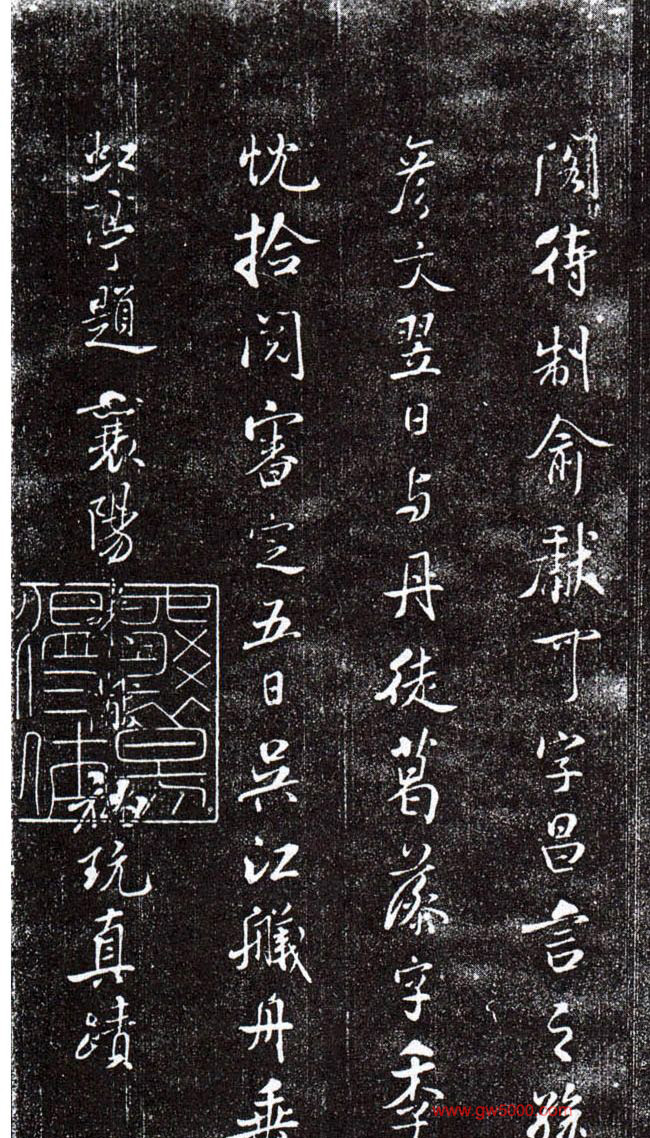 閣待制俞獻可字昌言之孫
彥文翌日與丹徒葛藻字季
忱拾閱審定五日吳江艤舟垂
虹亭題 襄陽 祕玩真蹟
www.gw5000.com